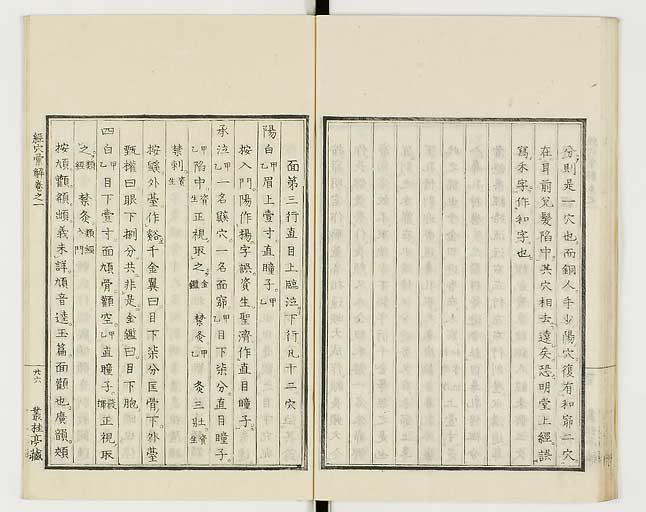 分則是一穴也而銅人手少陽穴復有和窌二穴
在耳前兌髮陷中其穴相去遠矣恐明堂上經誤
寫禾字作和字也
面第三行直目上臨泣下行凡十二穴
陽白甲乙眉上壹寸直瞳子甲乙
按入門陽作揚字誤資生聖濟作直目瞳子
承泣甲乙一名鼷穴一名面窌甲乙目下柒分直目瞳子
甲乙陷中資生正視取之金鑑禁灸甲乙灸三壯資生
禁刺資生
按鼷外臺作谿千金翼曰目下柒分匡骨下外臺
甄權曰眼下捌分共非是金鑑曰目下胞
四白甲乙目下壹寸面頄骨顴空甲乙直瞳子發揮正視取
之類經禁灸類經入門
按頄顴䪼䪼義未詳頄音逵玉篇面顴也廣韻頰
經穴彙解卷之一
廿六
叢桂亭藏